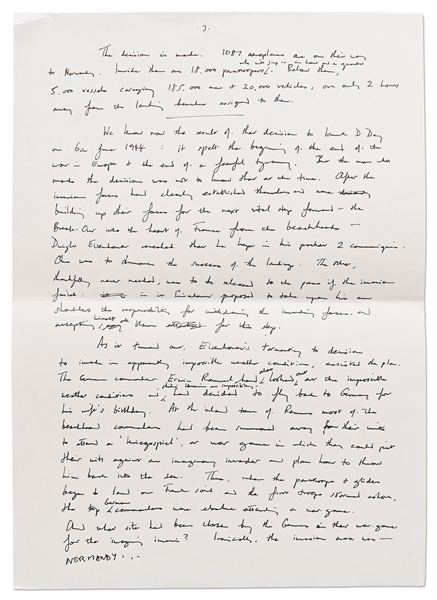 . 3 .
The decision is made. 1087 aeroplanes are on their way
to Normandy. Inside them are 18,000 paratroopers who will jump in an hour and a quarter. Below them,
5,000 vessels carrying 185,000 men & 20,000 vehicles, are only 2 hours
away from the landing beaches assigned to them.
We know now the result of that decision to launch D Day
on 6th June 1944 : it spelt the beginning of the end of the
war in Europe & the end of a fearful tyranny. But the man who
made the decision was not to know that at the time. After the
invasion forces had clearly established themselves and were
building up their forces for the next vital step forward - the
Break-Out into the heart of France from the beachheads -
Dwight Eisenhower revealed that he kept in his pocket 2 communiqués.
One was to announce the success of the landings. The other,
thankfully never needed, was to be released to the press if the invasion
failed : in it Eisenhower proposed to take upon his own
shoulders the responsibility for withdrawing the invading forces and
accepting himself the for this step.
As it turned out, Eisenhower's decision
to invade in apparently impossible weather conditions, assisted the plan.
The German commander, Erwin Rommel had also looked out at the impossible
weather conditions and, thinking invasion an impossibility, had decided to fly back to Germany for
his wife's birthday. At the inland town of Rennes most of the
beachhead commanders had been summoned away from their units
to attend a 'kriegspiel', or war game in which they could pit
their wits against an imaginary invader and plan how to throw
him back into the sea. Thus, when the paratroops & gliders
began to land on French soil and the first troops stormed ashore,
the top German commanders were elsewhere attending a war game.
And what site had been chosen by the Germans in their war game
for the imaginary invasion? Ironically, the invasion area was -
NORMANDY . . .